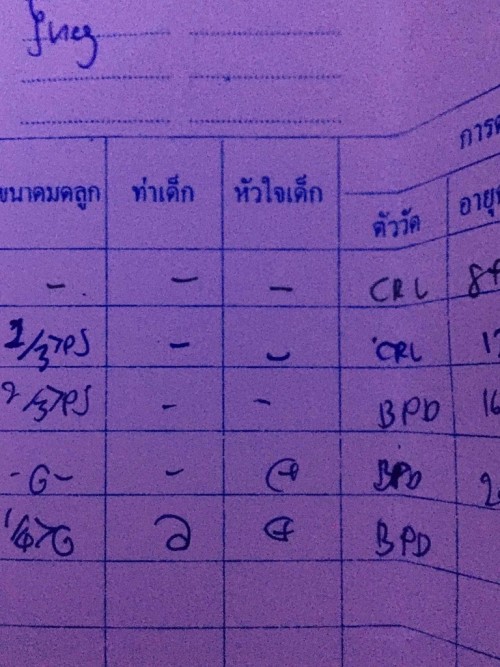 การต
ขนาดมดลูก ท่าเด็ก หัวใจเด็ก ตัววัด อายุ
- - - CRL 8+
1/3>PS - - CRL 17
2/3>PS - - BPD 16
-G- - BPD 2
1/4>G BPD